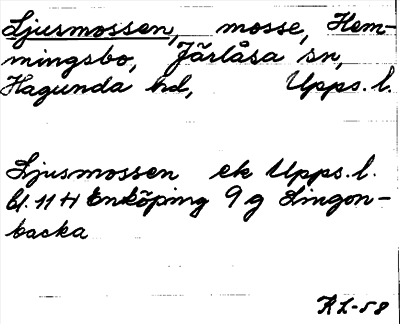 Ljusmossen, mosse, Hem-
mingsbo, Järlåsa sn,
Hagunda hd, Upps. l.
Ljusmossen ek Upps. l.
bl. 11 H Enköping 9 g Lingon-
backa
RL-58